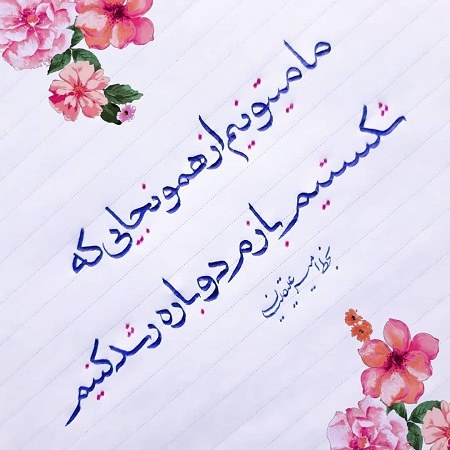 ما میتونیم از همونجایی که
شکستیم بازم دوباره رشد کنیم
بخط امیر